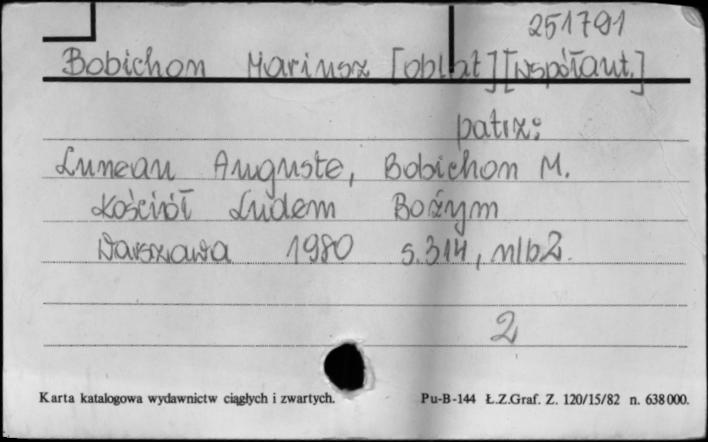 251791
Bobichon Mariusz [oblat] [współaut.]
patrz:
Luneau Auguste, Bobichon M.
Kościół Ludem Bożym
Warszawa 1980 s. 314, nlb 2.
2
Karta katalogowa wydawnictw ciągłych i zwartych. Pu-B-144 Ł.Z.Graf. Z. 120/15/82 n. 638000.